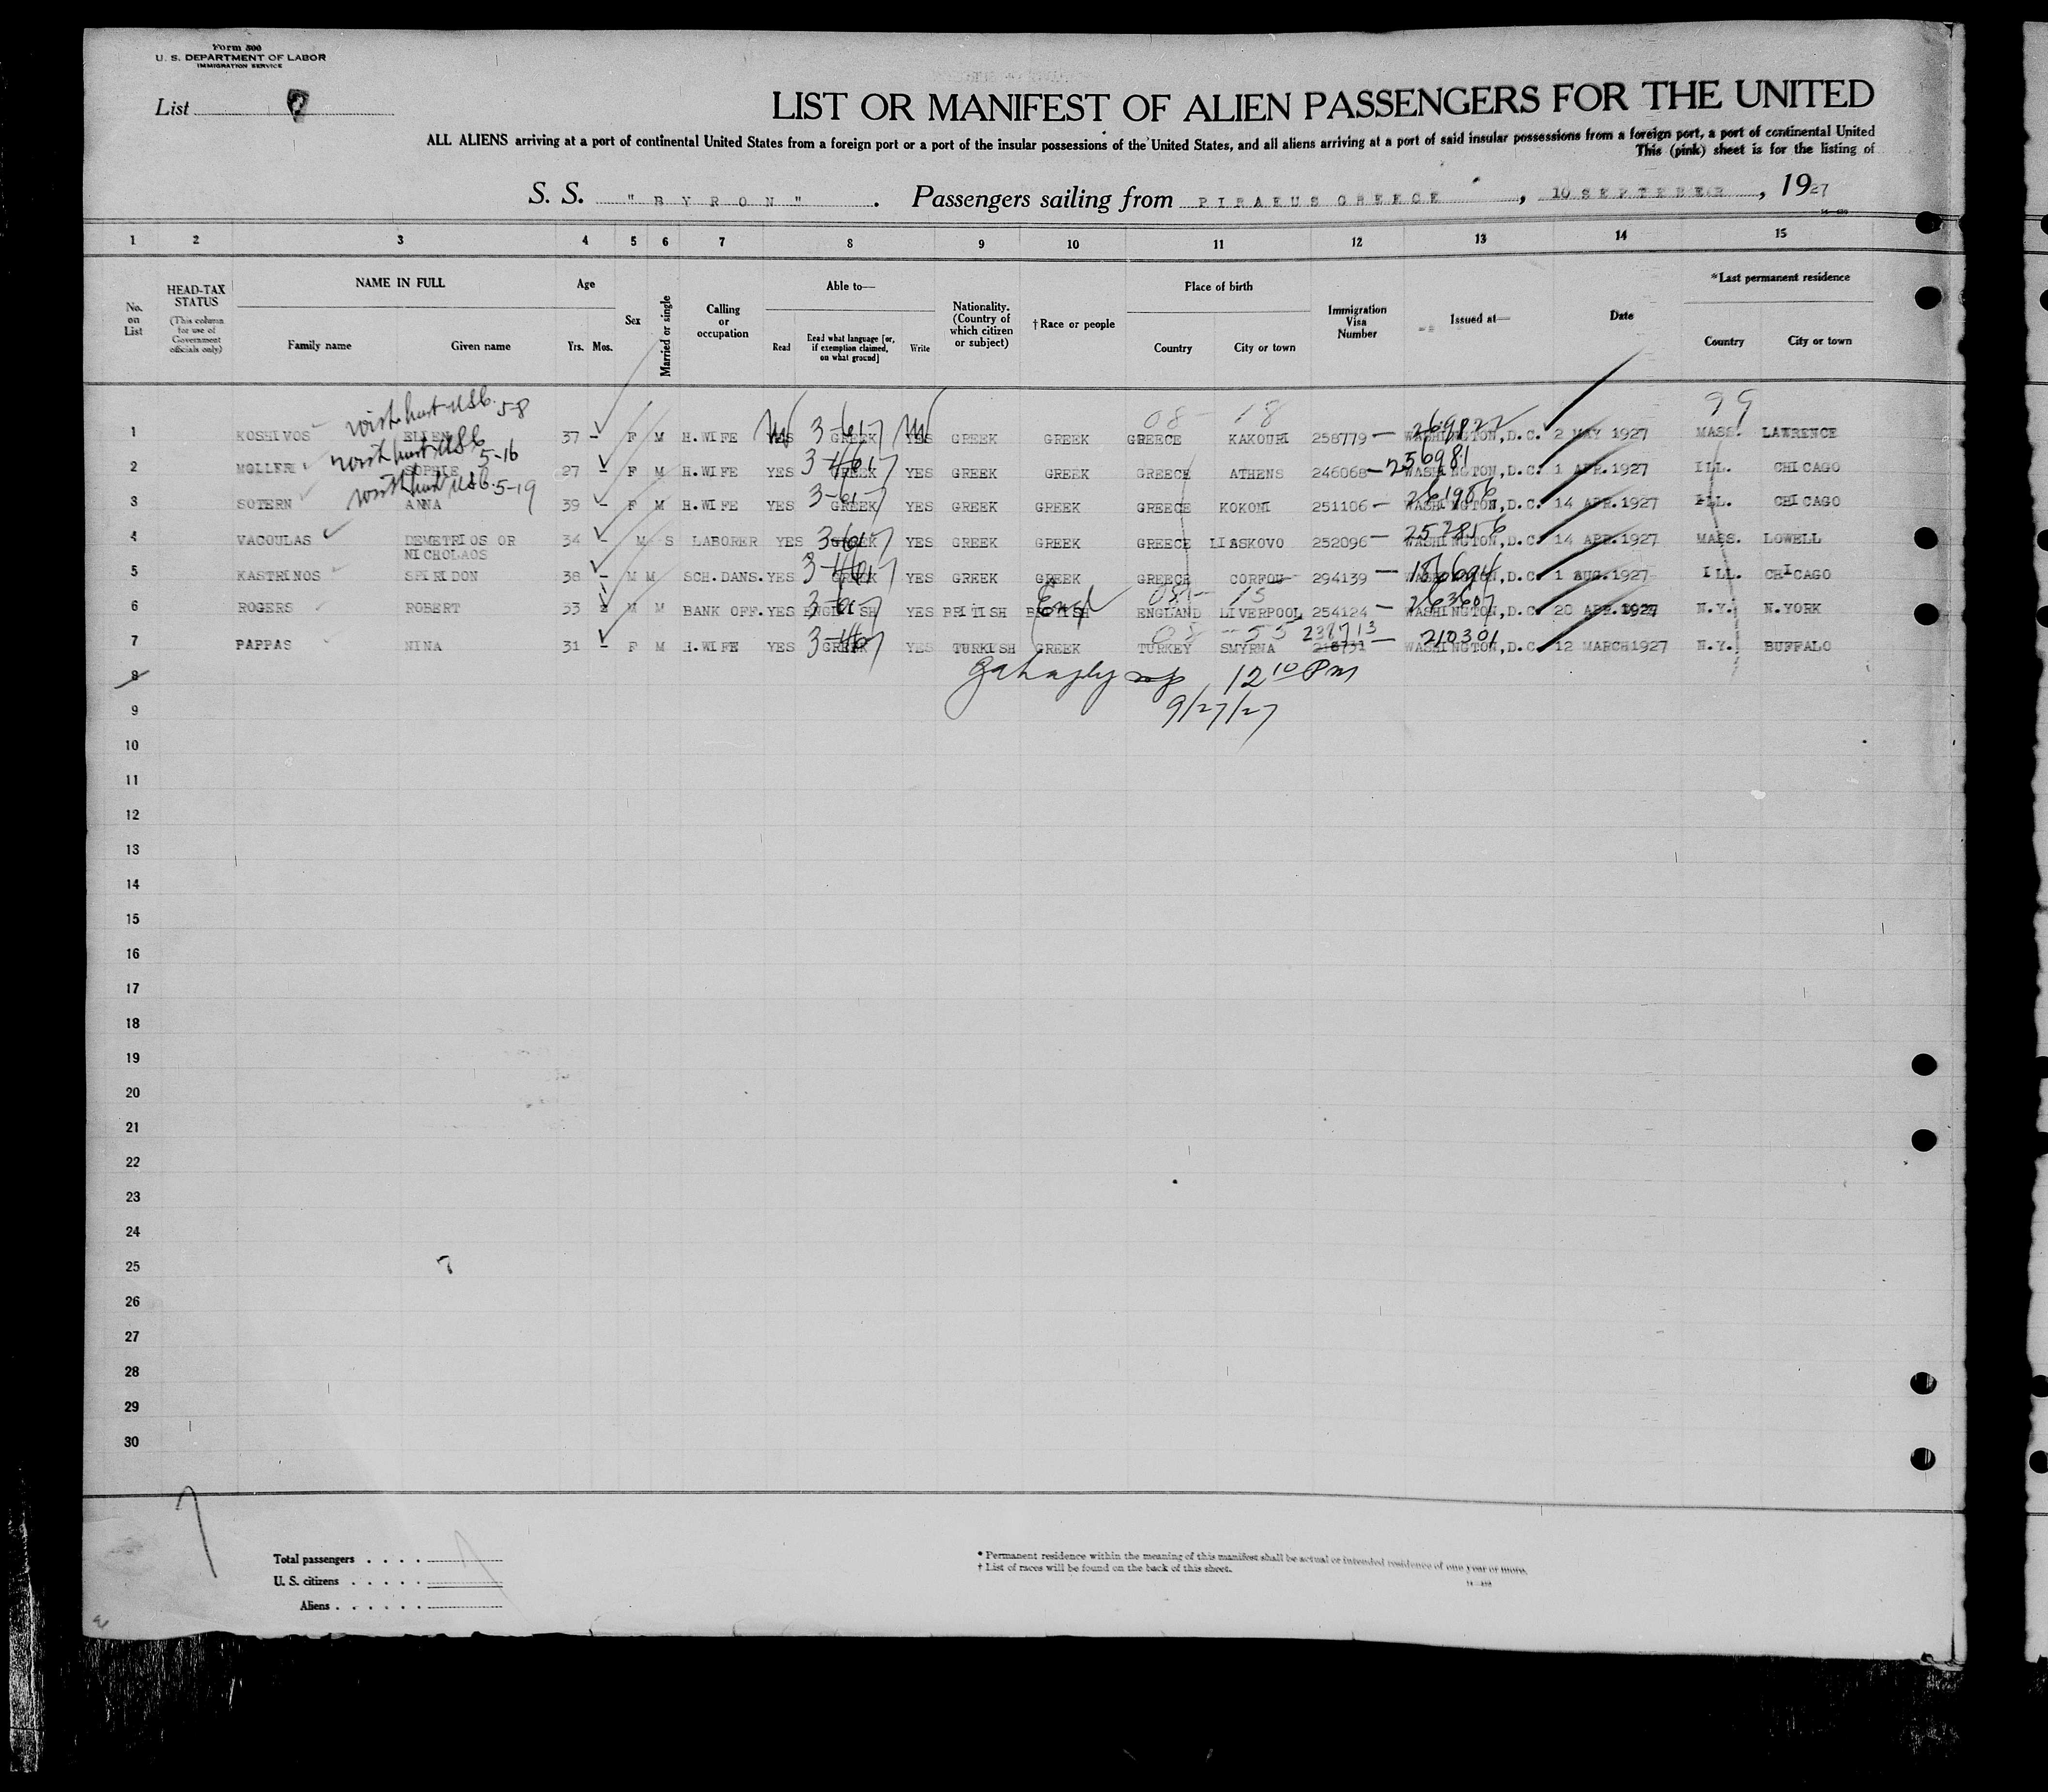 Form 500
U. S. DEPARTMENT OF LABOR
IMMIGRATION SERVICE
List
LIST OR MANIFEST OF ALIEN PASSENGERS FOR THE UNITED
ALL ALIENS arriving at a port of continental United States from a foreign port or a port of the insular possessions of the United States, and all aliens arriving at a port of said insular possessions from a foreign port, a port of continental United
This (pink) sheet is for the listing of
S. S. "BYRON". Passengers sailing from PIRAEUS GREECE, 10 SEPTEBER, 1927
1 2 3 4 5 6 7 8 9 10 11 12 13 14 15
No. on List
HEAD-TAX STATUS
(This column for use of Government officials only)
NAME IN FULL
Family name Given name
Age
Yrs. Mos.
Sex
Married or single
Calling or occupation
Able to—
Read
Read what language [or, if exemption claimed, on what ground]
Write
Nationality. (Country of which citizen or subject)
†Race or people
Place of birth
Country City or town
Immigration Visa Number
Issued at—
Date
*Last permanent residence
Country City or town
5-8
08 - 18 99
1 KOSHIVOS ELLEN 37 - F M H.WIFE YES GREEK YES GREEK GREEK GREECE KAKOURI 258779 - WASHINGTON,D.C. 2 MAY 1927 MASS. LAWRENCE
269822
5-16
2 MOLLER SOPHIE 27 - F M H.WIFE YES GREEK YES GREEK GREEK GREECE ATHENS 246068 - WASHINGTON,D.C. 1 APR.1927 ILL. CHICAGO
256981
5-19
3 SOTERN ANNA 39 - F M H.WIFE YES GREEK YES GREEK GREEK GREECE KOKONI 251106 - WASHINGTON,D.C. 14 APR.1927 ILL. CHICAGO
261986
4 VACOULAS DEMETRIOS OR NICHOLAOS 34 - M S LABORER YES GREEK YES GREEK GREEK GREECE LIASKOVO 252096 - WASHINGTON,D.C. 14 APR.1927 MASS. LOWELL
252856
5 KASTRINOS SPIRIDON 38 - M M SCH.DANS. YES GREEK YES GREEK GREEK GREECE CORFOU 294139 - WASHINGTON,D.C. 1 AUG.1927 ILL. CHICAGO
08 - 15
6 ROGERS ROBERT 33 - M M BANK OFF. YES ENGLISH YES BRITISH BRITISH Eng ENGLAND LIVERPOOL 254124 - WASHINGTON,D.C. 20 APR.1927 N.Y. N.YORK
263607
08 - 55 238713
7 PAPPAS NINA 31 - F M H.WIFE YES GREEK YES TURKISH GREEK TURKEY SMYRNA WASHINGTON,D.C. 12 MARCH1927 N.Y. BUFFALO
210301
8
12 10 PM
9
9/27/27
10
11
12
13
14
15
16
17
18
19
20
21
22
23
24
25
26
27
28
29
30
7
Total passengers . . . .
U. S. citizens . . . . .
Aliens . . . . . .
* Permanent residence within the meaning of this manifest shall be actual or intended residence of one year or more.
† List of races will be found on the back of this sheet.